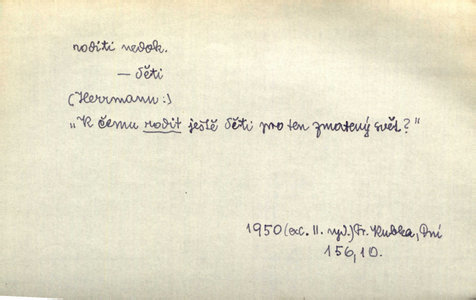 roditi nedok.
— děti
(Herrmann:)
„K čemu rodit ještě děti pro ten zmatený svět?"
1950 (exc. II. vyd.) Fr. Kubka, Dni
156, 10.